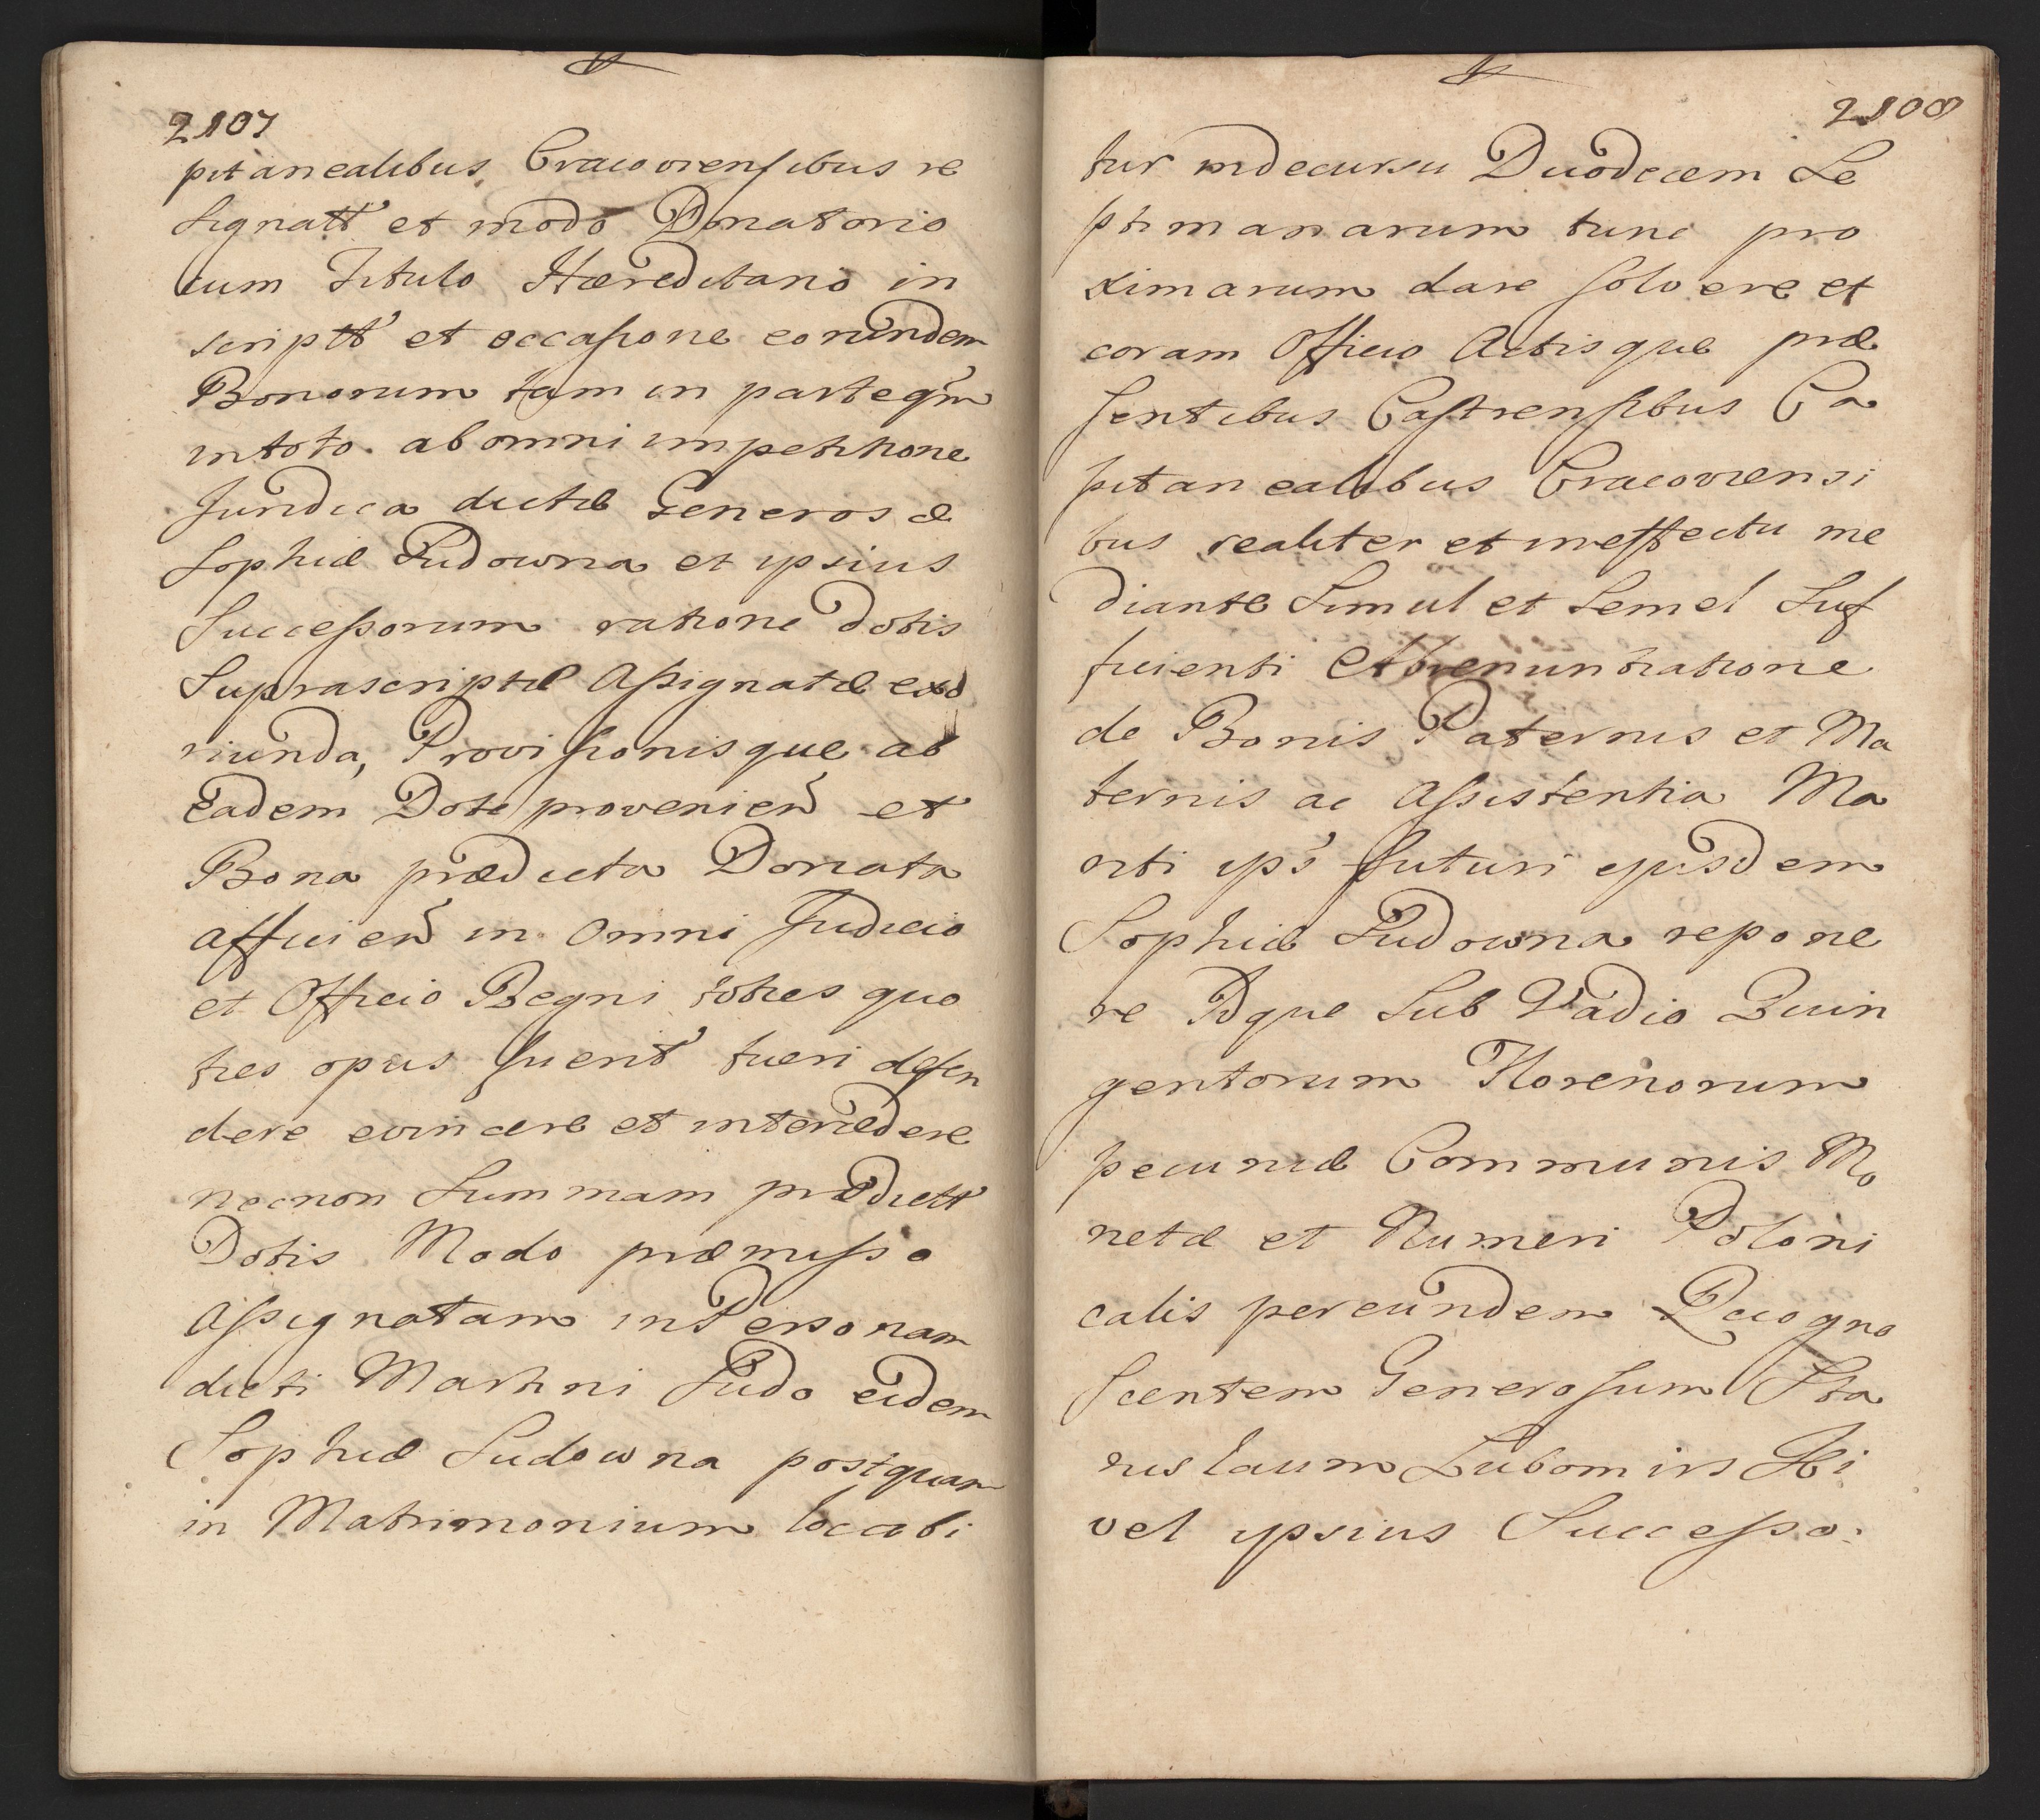 2807
pitanealibus Cracoviensibus re
signatt et modo Donatorio
cum Titulo Hæreditario in
scriptt et occasione eorundem
Bonorum tam in parte qm
in toto ab omni impetitione
Juridica dictæ Generosæ
Sophiæ Ludowna et ipsius
Successorum ratione Dotis
Suprascriptæ Assignatæ exo
riunda, Provisionisque ab
eadem Dote provenien et
Bona prædicta Donata
afficien in omni Judicio
et Officio Regni toties quo
ties opus fuerit tueri defen
dere evincere et intercedere
necnon Summam prædictt
Dotis Modo præmisso
Assignatam in Personam
dicti Martini Ludo eidem
Sophiæ Ludowna postquam
in Matrimonium locabi
2808
tur in decursu Duodecem Se
ptimanarum tunc pro
ximarum dare solvere et
coram Officio Actisque præ
sentibus Castrensibus Ca
pitanealibus Cracoviensi
bus realiter et in effectu me
diante Simul et Semel Suf
ficienti Abrenuntiatione
de Bonis Paternis et Ma
ternis ac Assistentia Ma
riti ips futuri ejusdem
Sophiæ Ludowna repone
re Idque Sub Vadio Quin
gentorum Florenorum
pecuniæ Communis Mo
netæ et Numeri Poloni
calis per eundem Recogno
scentem Generosum Sta
nislaum Lubomirski
vel ipsius Successo